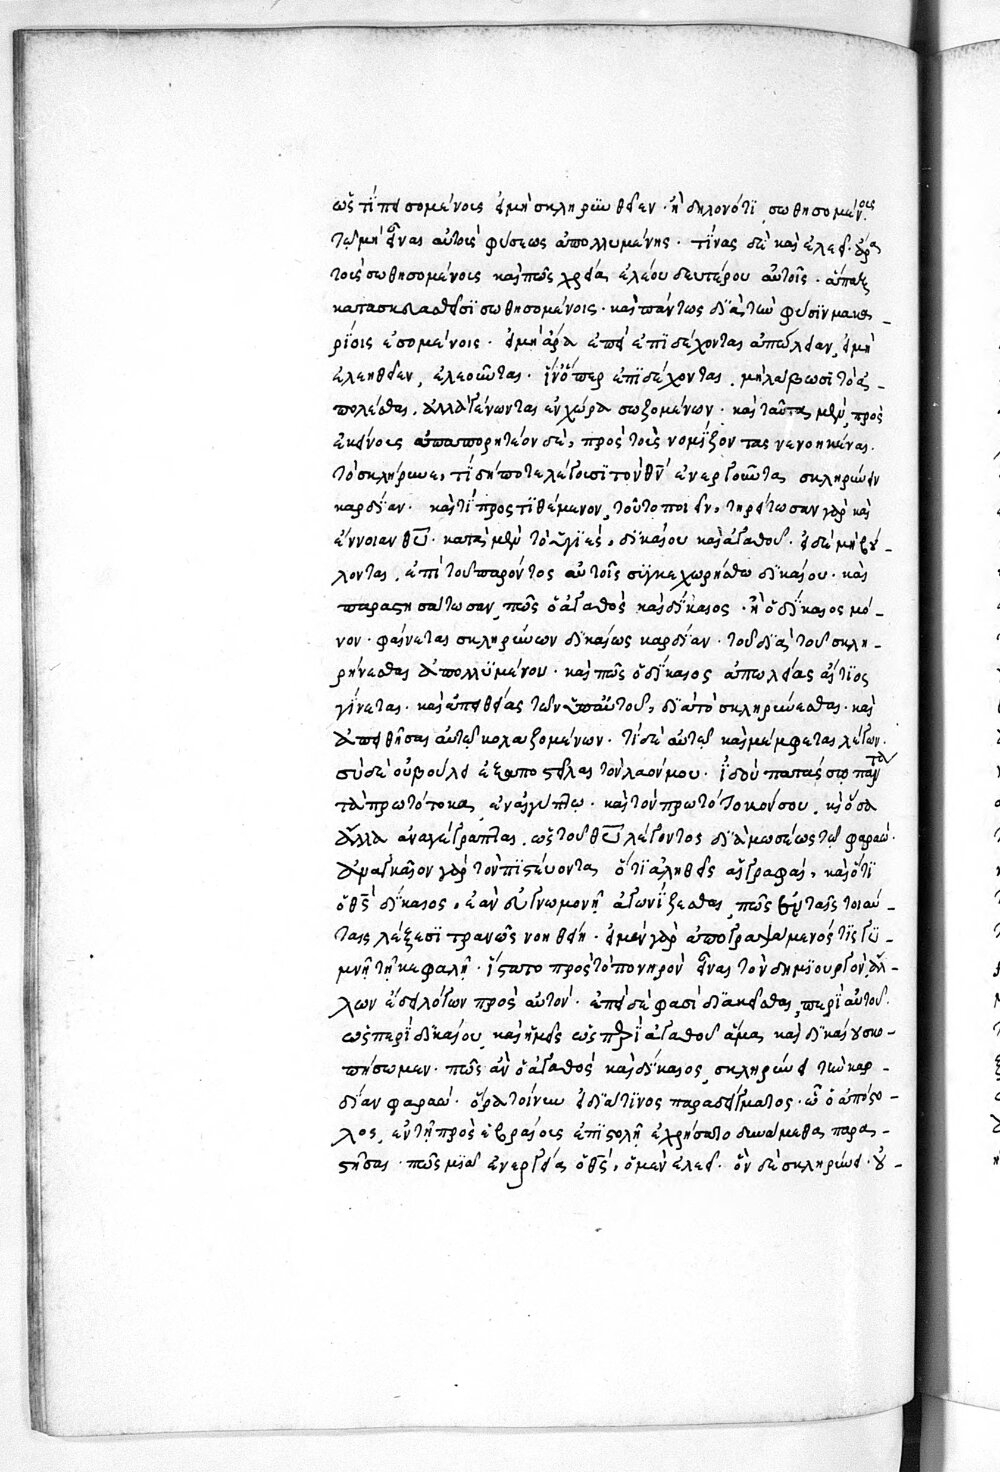 ὡς τί πεισομένοις εἰ μὴ σκληρυνθεῖεν· ἢ δηλονότι σωθησομένοις
τῷ μὴ εἶναι αὐτοὺς φύσεως ἀπολλυμένης· τίνας δὲ καὶ ἐλεεῖ· ἆρα
τοὺς σωθησομένους καὶ πῶς χρεία ἐλέου δευτέρου αὐτοῖς· ἅπαξ
κατασκευασθεῖσι σωθησομένοις· καὶ πάντως διὰ τὴν φύσιν μακα_
ρίοις ἐσομένοις· εἰ μὴ ἄρα ἐπεὶ ἐπιδέχονται ἀπώλειαν, εἰ μὴ
ἐλεηθεῖεν, ἐλεοῦνται· ἵν' ὅπερ ἐπιδέχονται, μὴ λάβωσι τὸ ἀ_
πολέσθαι, ἀλλὰ γένωνται ἐν χώρᾳ σωζομένων· καὶ ταῦτα μὲν πρὸς
ἐκείνους ἀπαπορητέον δὲ, πρὸς τοὺς νομίζοντας νενοηκέναι
τὸ σκλήρυνε, τί δήποτε λέγουσι τὸν θν̄ ἐνεργοῦντα σκληρύνειν
καρδίαν· καὶ τί προστιθέμενον, τοῦτο ποιεῖν, τηρείτωσαν γὰρ καὶ
ἔννοιαν θῡ· κατὰ μὲν τὸ ὑγιὲς, δικαίου καὶ ἀγαθοῦ· εἰ δὲ μὴ βού_
λονται, ἐπὶ τοῦ παρόντος αὐτοῖς συγκεχωρήσθω δικαίου· καὶ
παραστησάτωσαν, πῶς ὁ ἀγαθὸς καὶ δίκαιος· ἢ ὁ δίκαιος μό_
νον· φαίνεται σκληρύνων δικαίως καρδίαν· τοῦ διὰ τοῦ σκλη_
ρύνεσθαι ἀπολλυμένου· καὶ πῶς ὁ δίκαιος ἀπωλείας αἴτιος
γίνεται· καὶ ἀπειθείας τῶν ὑπ' αὐτοῦ, διὰ τὸ σκληρύνεσθαι· καὶ
ἀπειθῆσαι αὐτῷ κολαζομένων· τί δὲ αὐτῷ καὶ μέμφεται λέγων·
σὺ δὲ οὐ βούλει ἐξαποστεῖλαι τὸν λαόν μου· ἰδοὺ πατάσσω πάντα
τὰ πρωτότοκα, ἐν αἰγύπτῳ· καὶ τὸν πρωτότοκόν σου, καὶ ὅσα
ἄλλα ἀναγέγραπται, ὡς τοῦ θῡ λέγοντος διὰ μωσέως τῷ φαραώ·
ἀναγκαῖον γὰρ τὸν πιστεύοντα, ὅτι ἀληθεῖς αἱ γραφαὶ, καὶ ὅτι
ὁ θς̄ δίκαιος, ἐὰν εὐγνωμονῇ ἀγωνίζεσθαι, πῶς ἐν ταῖς τοιαύ_
ταις λέξεσι τρανῶς νοηθείη· εἰ μὲν γὰρ ἀπογραψάμενός τις γυ_
μνῇ τῇ κεφαλῇ· ἵστατο πρὸς τὸ πονηρὸν εἶναι τὸν δημιουργὸν ἄλ_
λων ἔδει λόγων πρὸς αὐτὸν· ἐπεὶ δέ φασι διακεῖσθαι, περὶ αὐτοῦ
ὡς περὶ δικαίου, καὶ ἡμεῖς ὡς περὶ ἀγαθοῦ ἅμα, καὶ δικαίου σκο_
πήσωμεν· πῶς ἂν ὁ ἀγαθὸς καὶ δίκαιος, σκληρύνει τὴν καρ_
δίαν φαραώ· ὅρα τοίνυν εἰ διά τινος παραδείγματος· ᾧ ὁ ἀπόστο_
λος, ἐν τῇ πρὸς ἑβραίους ἐπιστολῇ ἐχρήσατο δυνάμεθα παρα_
στῆσαι· πῶς μιᾷ ἐνεργείᾳ ὁ θς̄, ὃ μὲν ἐλεεῖ· ὃν δὲ σκληρύνει· οὐ_